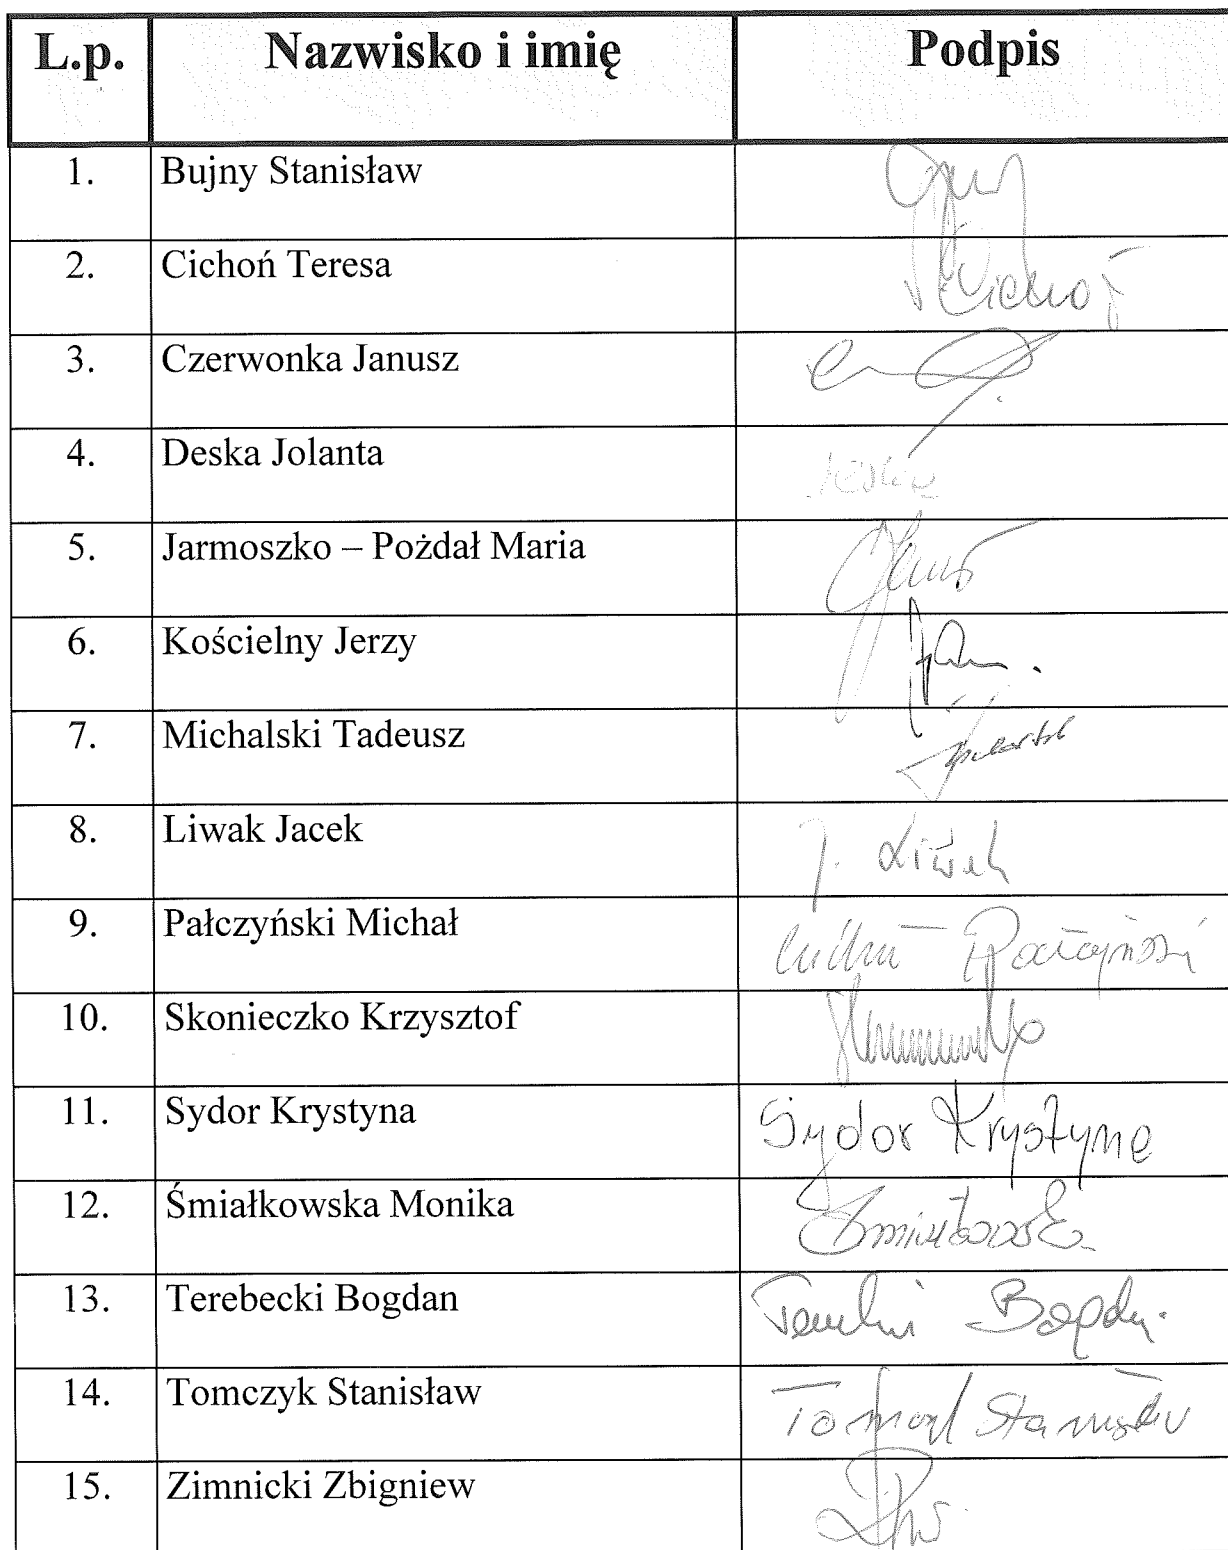 L.p. Nazwisko i imię Podpis
1. Bujny Stanisław
2. Cichoń Teresa
3. Czerwonka Janusz
4. Deska Jolanta
5. Jarmoszko – Pożdał Maria
6. Kościelny Jerzy
7. Michalski Tadeusz
8. Liwak Jacek J. Liwak
9. Pałczyński Michał
10. Skonieczko Krzysztof
11. Sydor Krystyna Sydor Krystyna
12. Śmiałkowska Monika
13. Terebecki Bogdan
14. Tomczyk Stanisław
15. Zimnicki Zbigniew